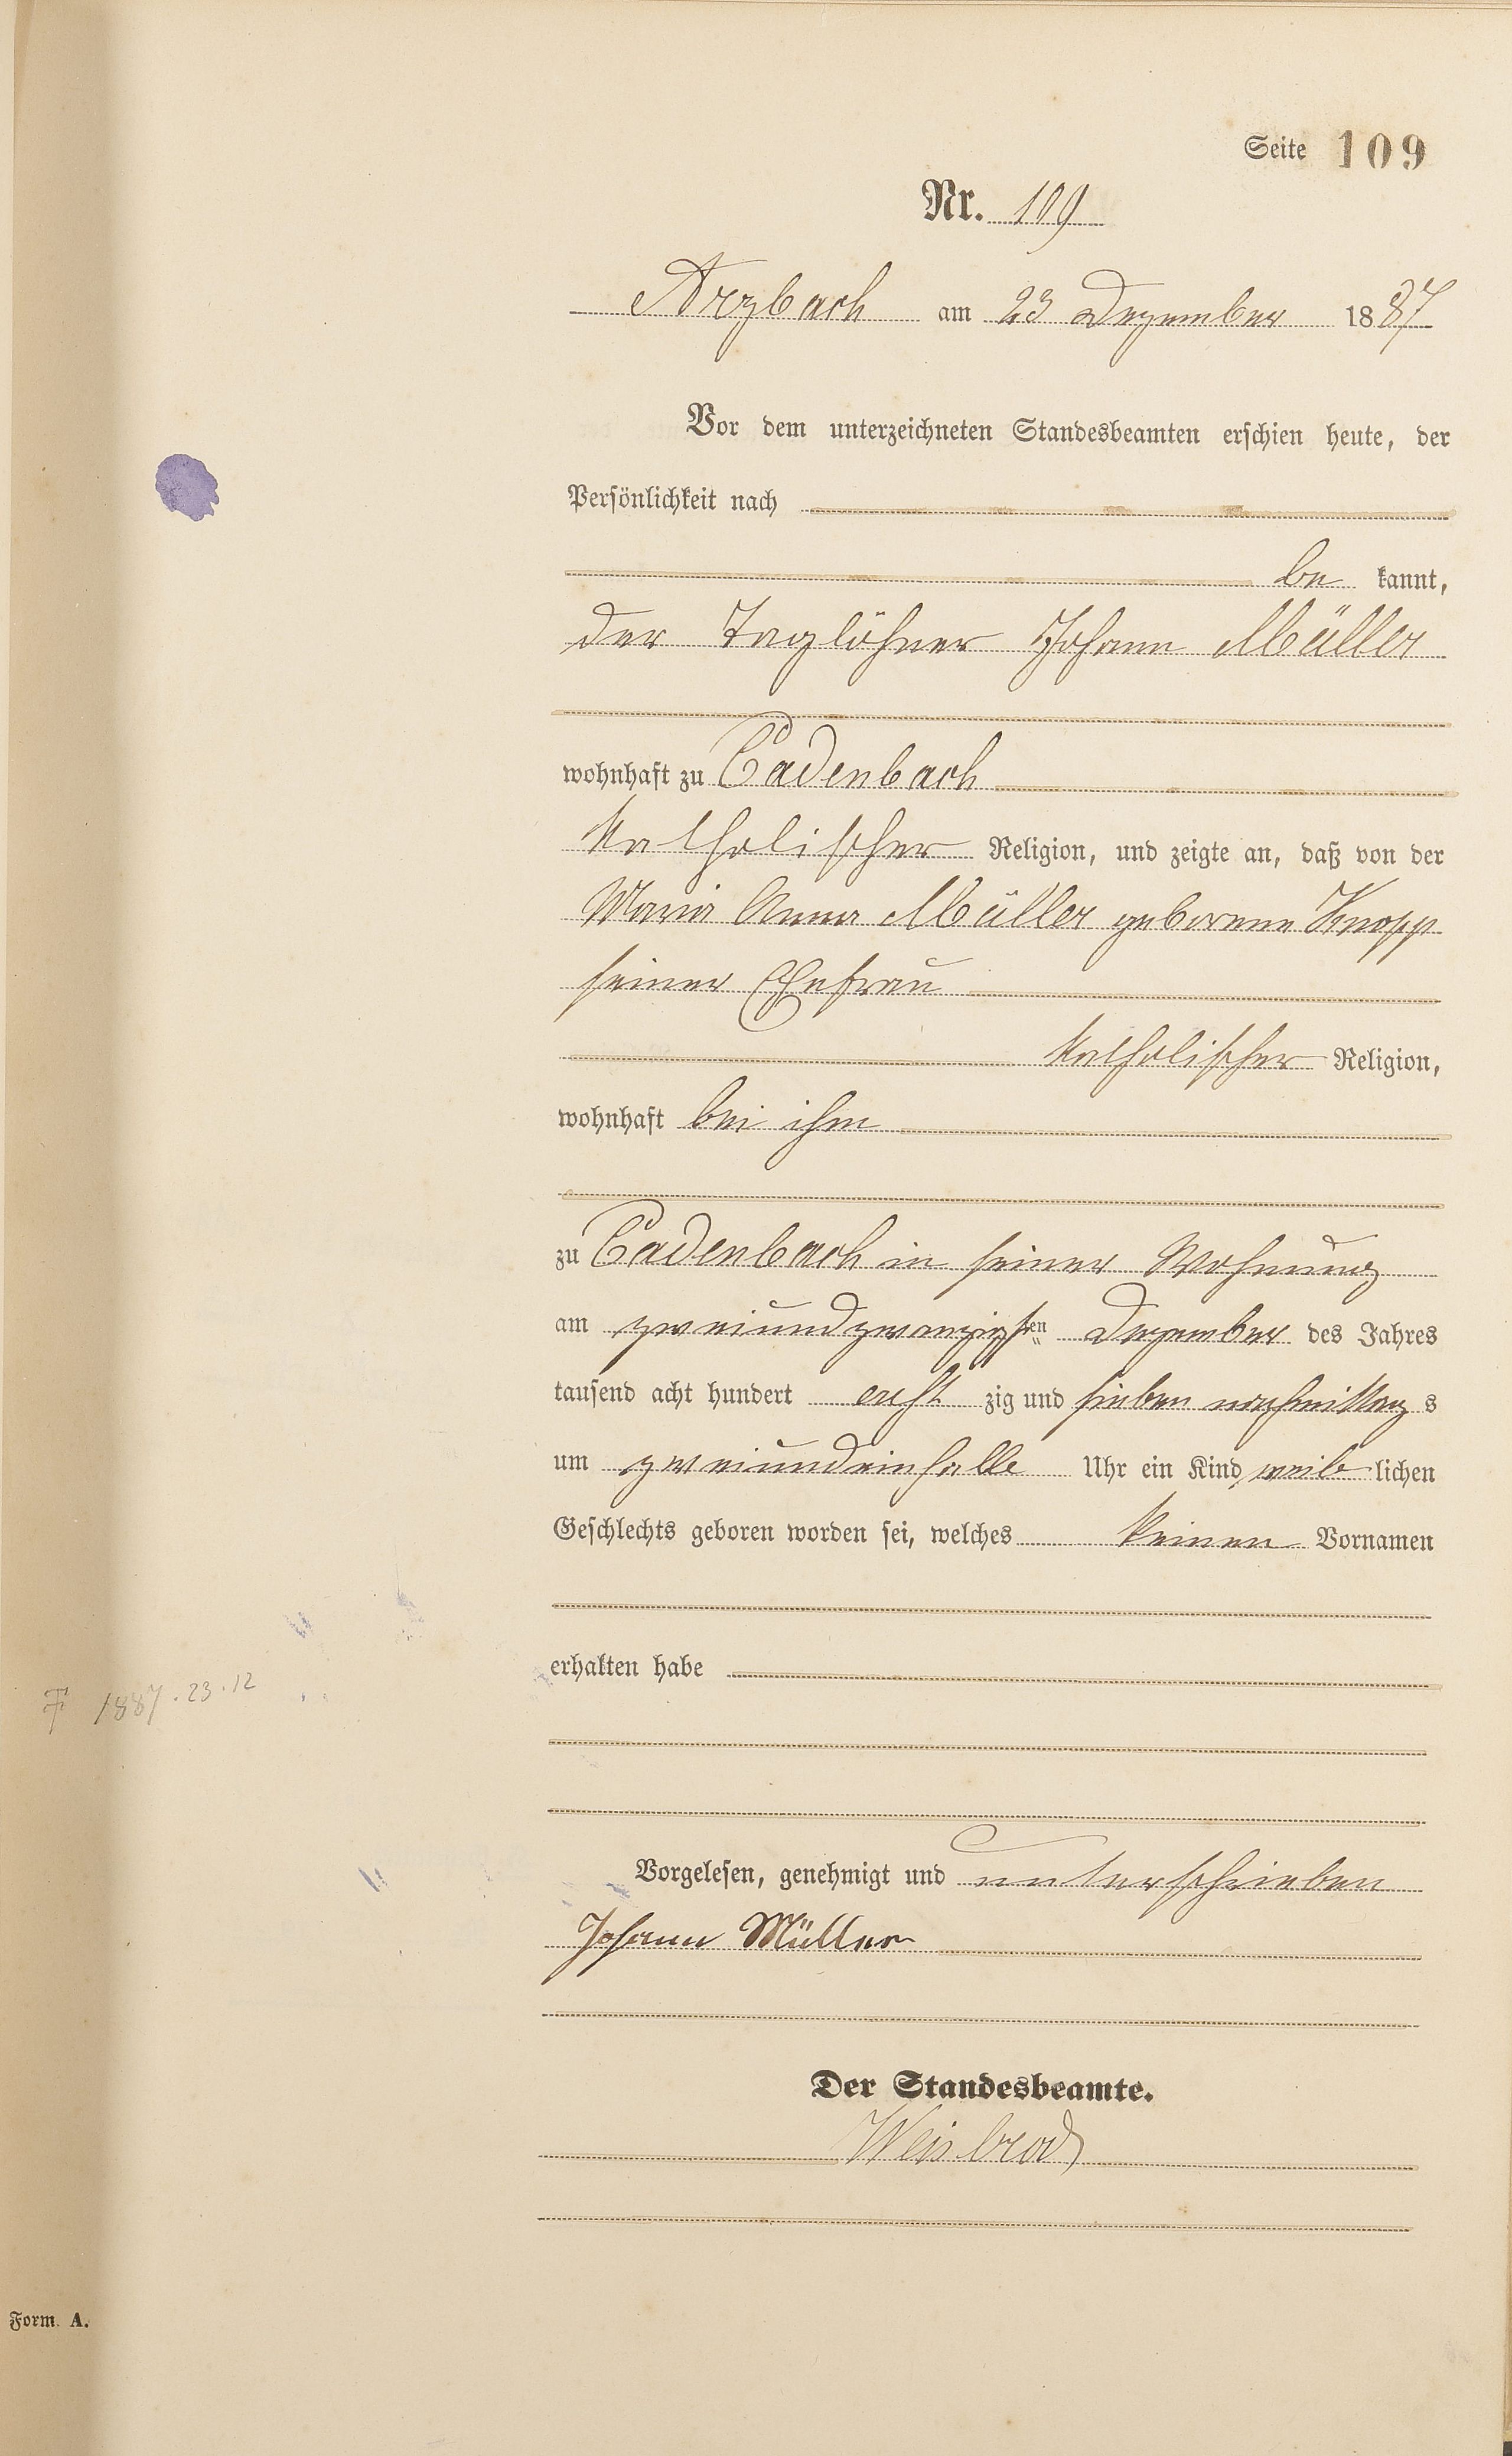 Seite 109
Nr. 109
Arzbach am 23 Dezember 1887
Vor dem unterzeichneten Standesbeamten erschien heute, der
Persönlichkeit nach
be kannt,
der Taglöhner Johann Müller
wohnhaft zu Cadenbach
katholischer Religion, und zeigte an, daß von der
Maria Anna Müller geborene Knopp
seiner Ehefrau
katholischer Religion,
wohnhaft bei ihm
zu Cadenbach in seiner Wohnung
am zweiundzwanzigsten Dezember des Jahres
tausend acht hundert acht zig und sieben nachmittag s
um zweiundeinhalb Uhr ein Kind weib lichen
Geschlechts geboren worden sei, welches keinen Vornamen
erhalten habe
† 1887.23.12
Vorgelesen, genehmigt und unterschrieben
Johann Müller
Der Standesbeamte.
Weisbrod
Form. A.